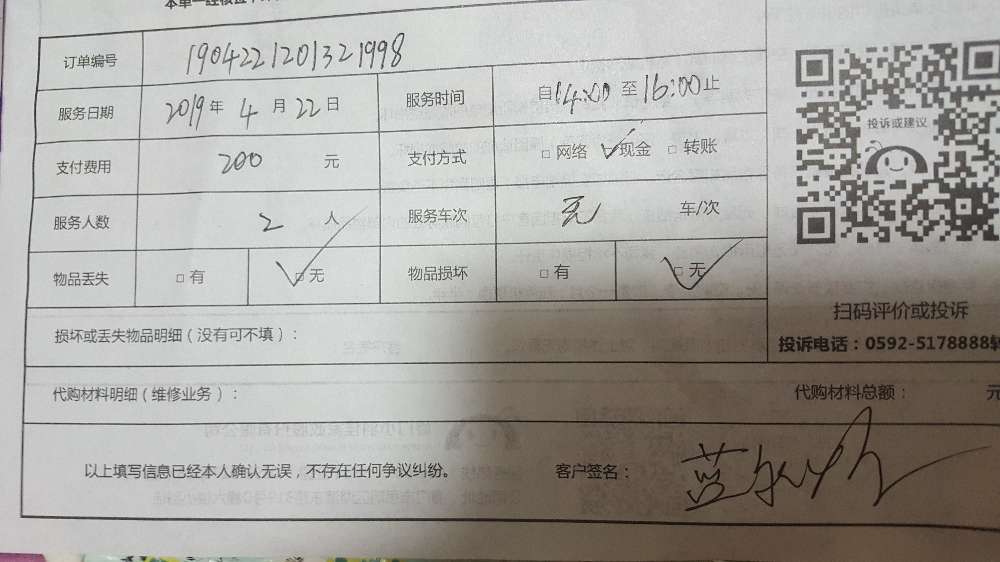 本单一经核
订单编号 1904221201321998
服务日期 2019年4月22日 服务时间 自14:00至16:00止
支付费用 200 元 支付方式 □网络 ☑现金 □转账
服务人数 2 人 服务车次 无 车/次
物品丢失 □有 ☑无 物品损坏 □有 ☑无
投诉或建议
扫码评价或投诉
投诉电话：0592-5178888转
损坏或丢失物品明细（没有可不填）：
代购材料明细（维修业务）： 代购材料总额： 元
以上填写信息已经本人确认无误，不存在任何争议纠纷。 客户签名： 蓝